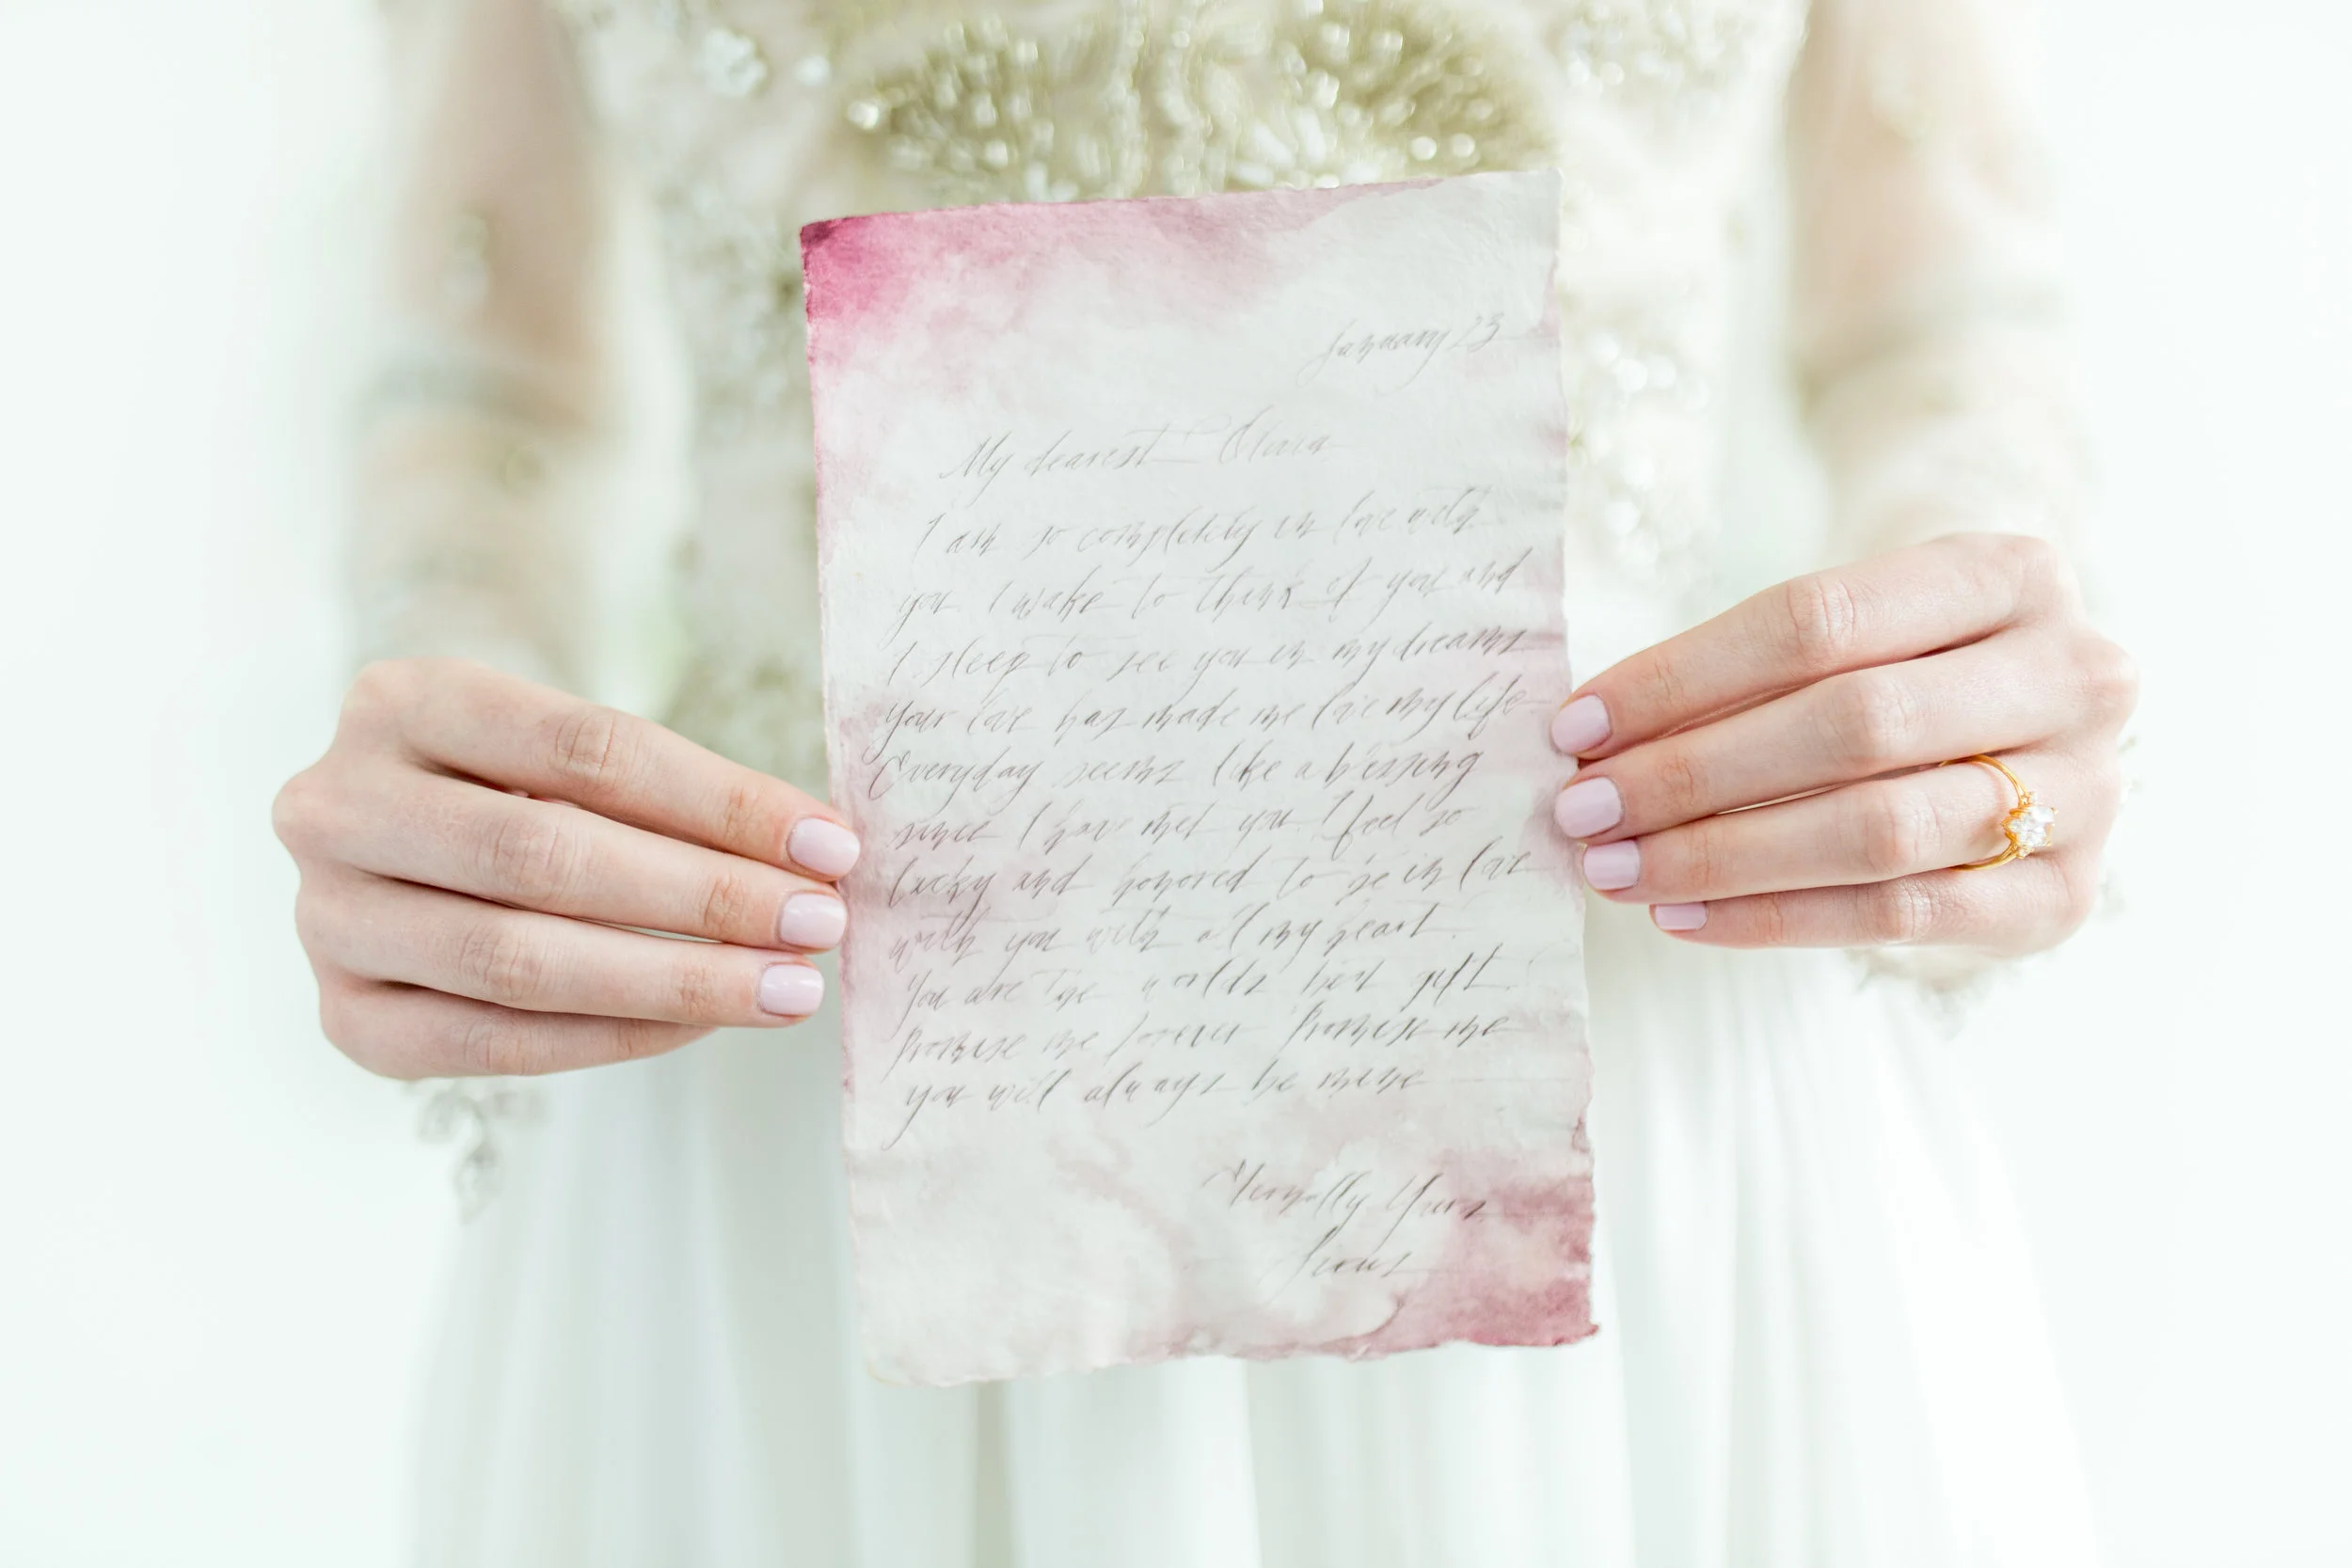 January 23
My dearest Olivia
I am so completely in love with
you. I wake to think of you and
I sleep to see you in my dreams
Your love has made me love my life
Everyday seems like a blessing
since I have met you. I feel so
lucky and honored to be in love
with you with all my heart.
You are the worlds best gift.
Promise me forever Promise me
you will always be mine
Eternally Yours